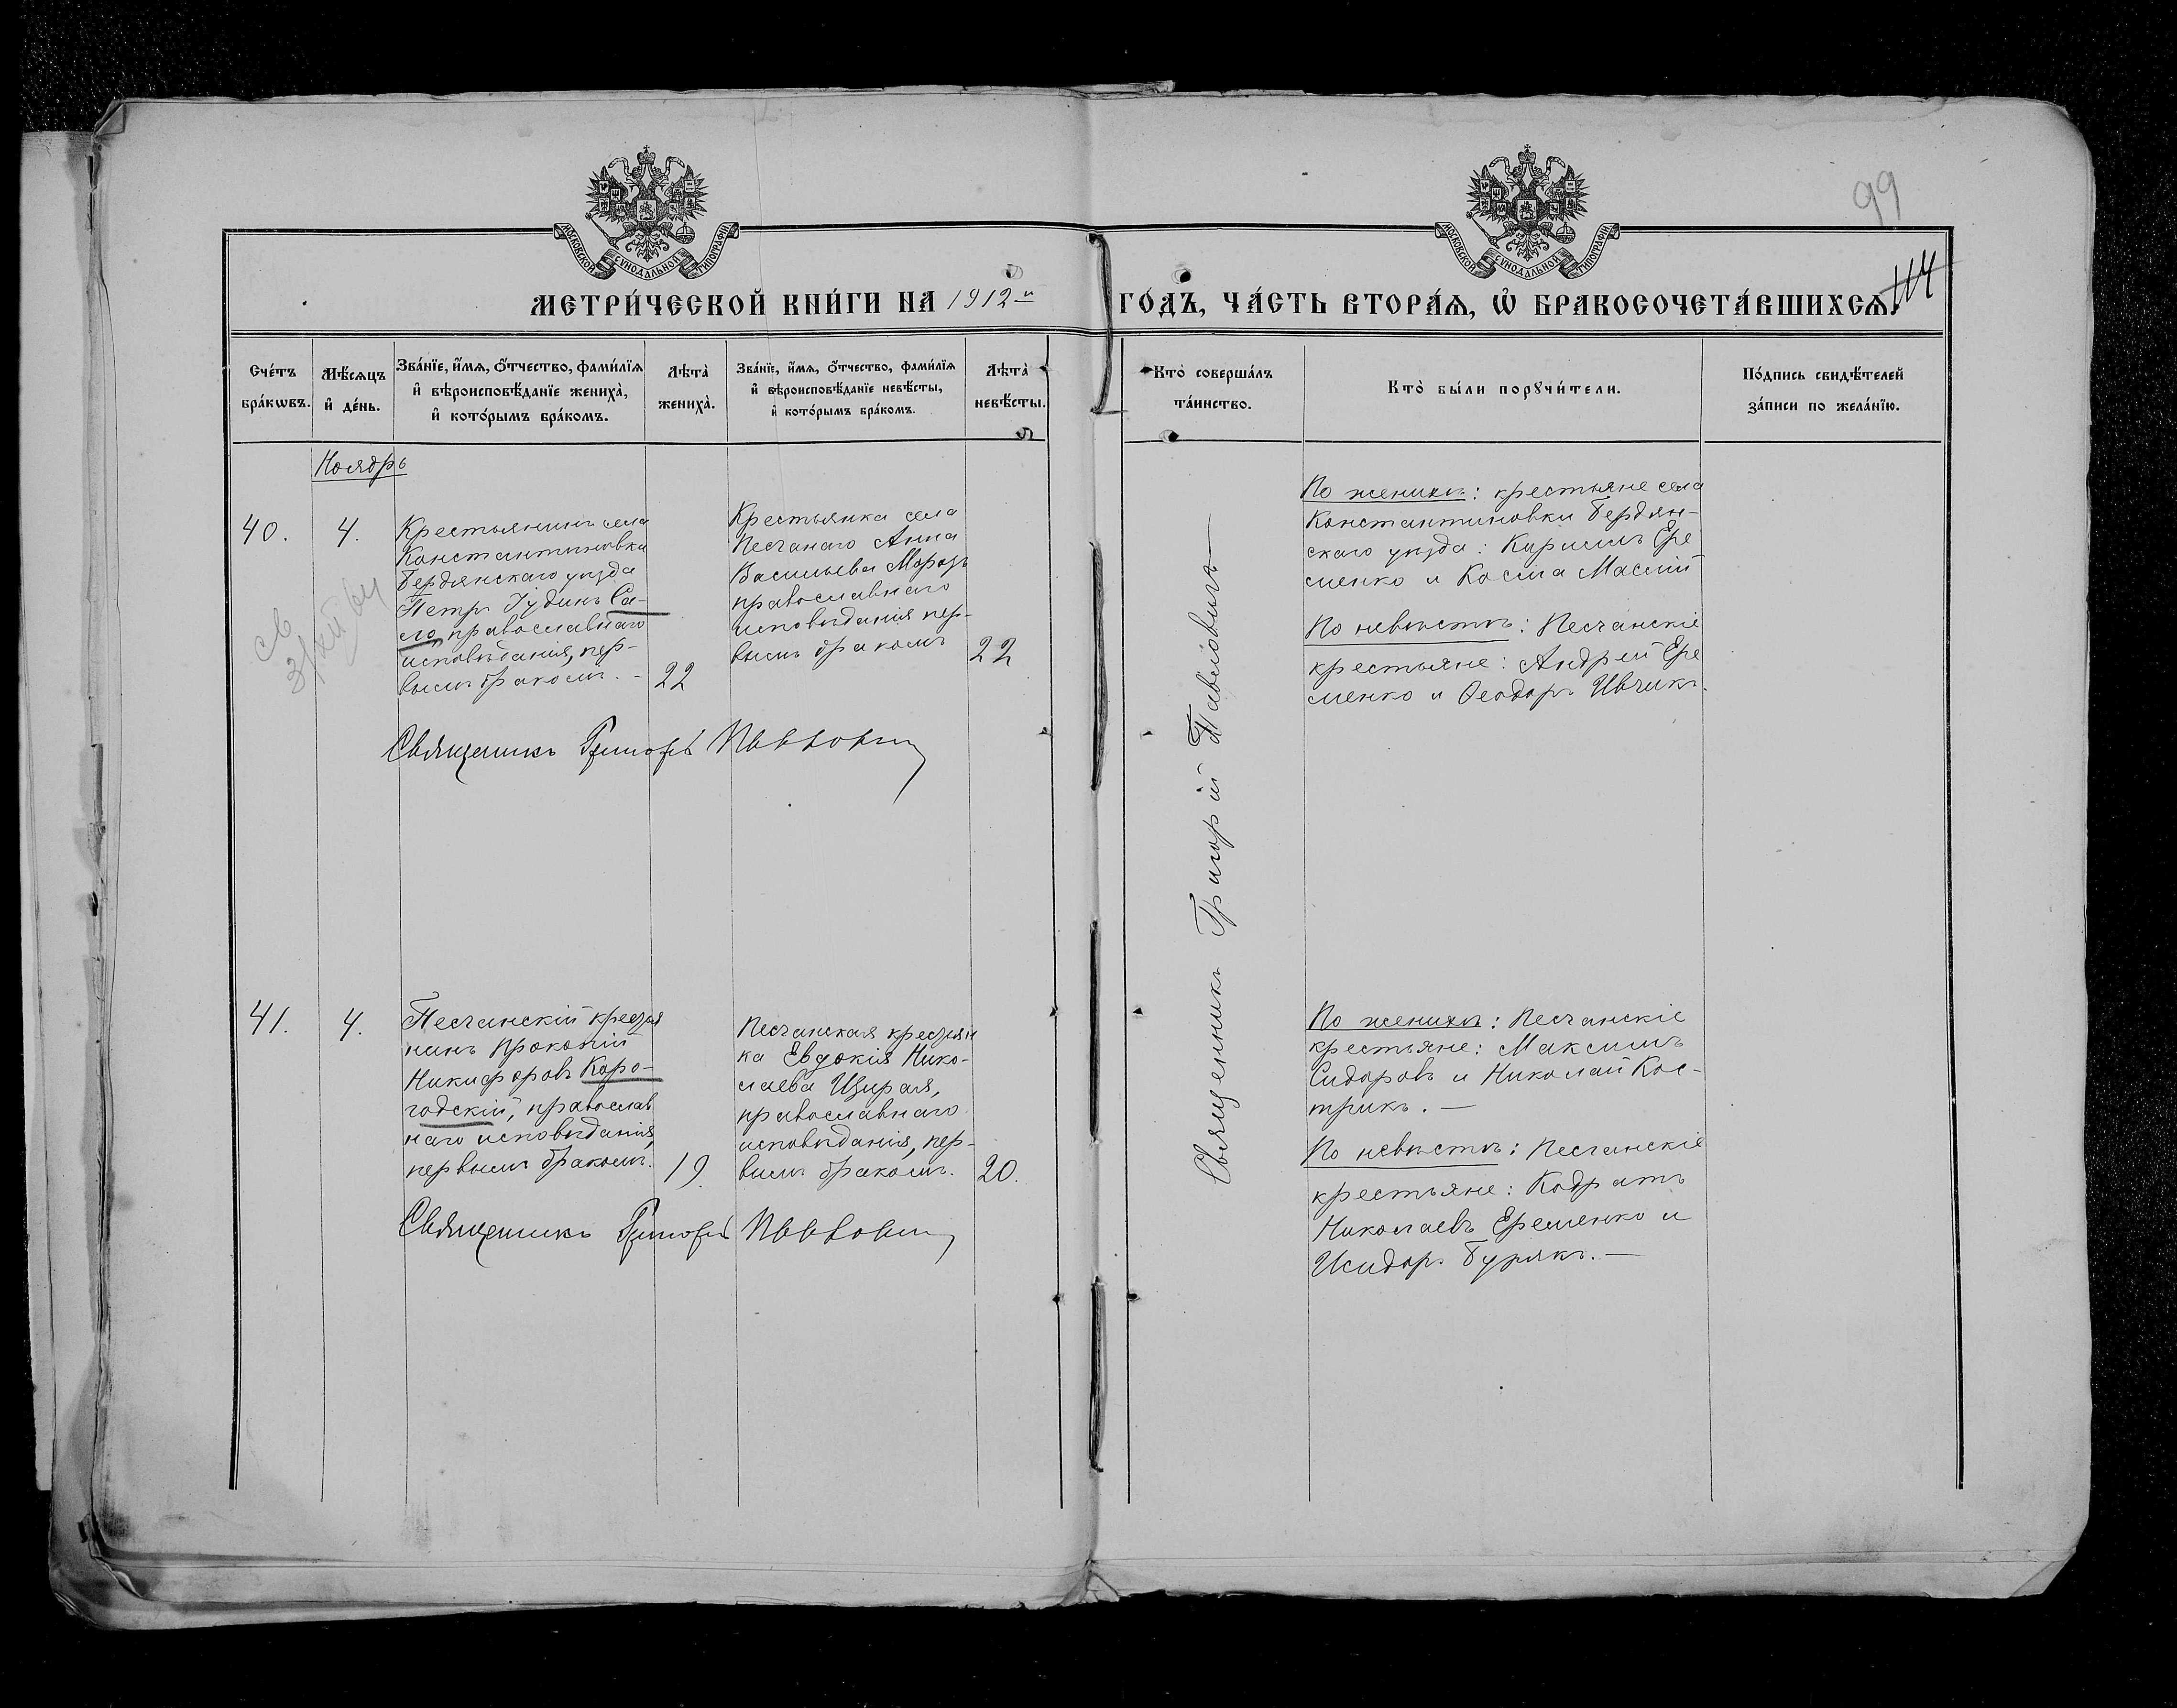 99
МОСКОВСКОЙ СѴНОДАЛЬНОЙ ТИПОГРАФІИ
МОСКОВСКОЙ СѴНОДАЛЬНОЙ ТИПОГРАФІИ
МЕТРИ́ЧЕСКОЙ КНИ́ГИ НА 1912й ГО́ДЪ, ЧА́СТЬ ВТОРА́Ѧ, Ѡ҆ БРАКОСОЧЕТА́ВШИХСѦ.
114
Сче́тъ
бра́кѡвъ.
Мѣ́сѧцъ
и҆ де́нь.
Зва́нїе, и҆́мѧ, ѻ҆́тчество, фами́лїѧ
и҆ вѣроисповѣ́данїе жениха̀,
и҆ кото́рымъ бра́комъ.
Лѣта̀
жениха̀.
Зва́нїе, и҆́мѧ, ѻ҆́тчество, фами́лїѧ
и҆ вѣроисповѣ́данїе невѣ́сты,
и҆ кото́рымъ бра́комъ.
Лѣта̀
невѣ́сты.
Кто̀ соверша́лъ
та́инство.
Кто̀ бы́ли порꙋчи́тели.
По́дпись свидѣ́телей
за́писи по жела́нїю.
Ноябрь
40.
4.
Крестьянинъ села
Константиновки
Бердянскаго уѣзда
Петръ Іудинъ Са-
ло, православнаго
исповѣданія, пер-
вымъ бракомъ. -
22
Крестьянка села
Песчанаго Анна
Васильева Морозъ
православнаго
исповѣданія пер-
вымъ бракомъ
22
Священникъ Григорій Павловичъ
Священникъ Григорій Павловичъ
По женихѣ: крестьяне села
Константиновки Бердян-
скаго уѣзда: Кириллъ Ере
менко и Косма Маслій
По невѣстѣ: Песчанскіе
крестьяне: Андрей Ере
менко и Ѳеодоръ Ивчикъ.
41.
4.
Песчанскій крестья
нинъ Прокопій
Никифоровъ Коро-
годскій, православ
наго исповѣданія,
первымъ бракомъ.
19.
Песчанская крестьян
ка Евдокія Нико-
лаева Щирая,
православнаго
исповѣданія, пер-
вымъ бракомъ.
20.
Священникъ Григорій Павловичъ
По женихѣ: Песчанскіе
крестьяне: Максимъ
Сидоровъ и Николай Кос-
трикъ. —
По невѣстѣ: Песчанскіе
крестьяне: Кодратъ
Николаевъ Еременко и
Исидоръ Бурякъ. —